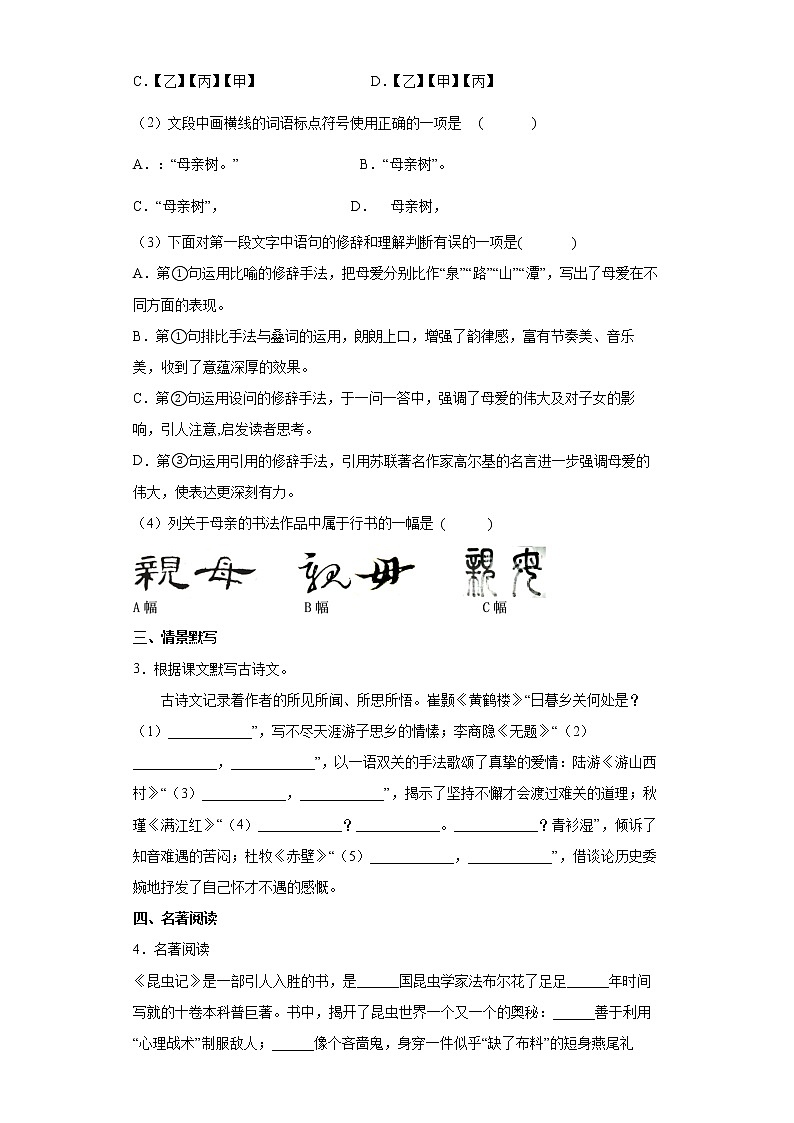 C.【乙】【丙】【甲】 D.【乙】【甲】【丙】
（2）文段中画横线的词语标点符号使用正确的一项是 （ ）
A.：“母亲树。” B.“母亲树”。
C.“母亲树”， D. 母亲树，
（3）下面对第一段文字中语句的修辞和理解判断有误的一项是( )
A．第①句运用比喻的修辞手法，把母爱分别比作“泉”“路”“山”“潭”，写出了母爱在不
同方面的表现。
B．第①句排比手法与叠词的运用，朗朗上口，增强了韵律感，富有节奏美、音乐
美，收到了意蕴深厚的效果。
C．第②句运用设问的修辞手法，于一问一答中，强调了母爱的伟大及对子女的影
响，引人注意,启发读者思考。
D．第③句运用引用的修辞手法，引用苏联著名作家高尔基的名言进一步强调母爱的
伟大，使表达更深刻有力。
（4）列关于母亲的书法作品中属于行书的一幅是（ ）
親母 親母 親母
A幅 B幅 C幅
三、情景默写
3．根据课文默写古诗文。
古诗文记录着作者的所见所闻、所思所悟。崔颢《黄鹤楼》“日暮乡关何处是？
（1）____________”，写不尽天涯游子思乡的情愫；李商隐《无题》“（2）
____________，____________”，以一语双关的手法歌颂了真挚的爱情：陆游《游山西
村》“（3）____________，____________”，揭示了坚持不懈才会渡过难关的道理；秋
瑾《满江红》“（4）____________？____________。____________？青衫湿”，倾诉了
知音难遇的苦闷；杜牧《赤壁》“（5）____________，____________”，借谈论历史委
婉地抒发了自己怀才不遇的感慨。
四、名著阅读
4．名著阅读
《昆虫记》是一部引人入胜的书，是______国昆虫学家法布尔花了足足______年时间
写就的十卷本科普巨著。书中，揭开了昆虫世界一个又一个的奥秘：______善于利用
“心理战术”制服敌人；______像个吝啬鬼，身穿一件似乎“缺了布料”的短身燕尾礼